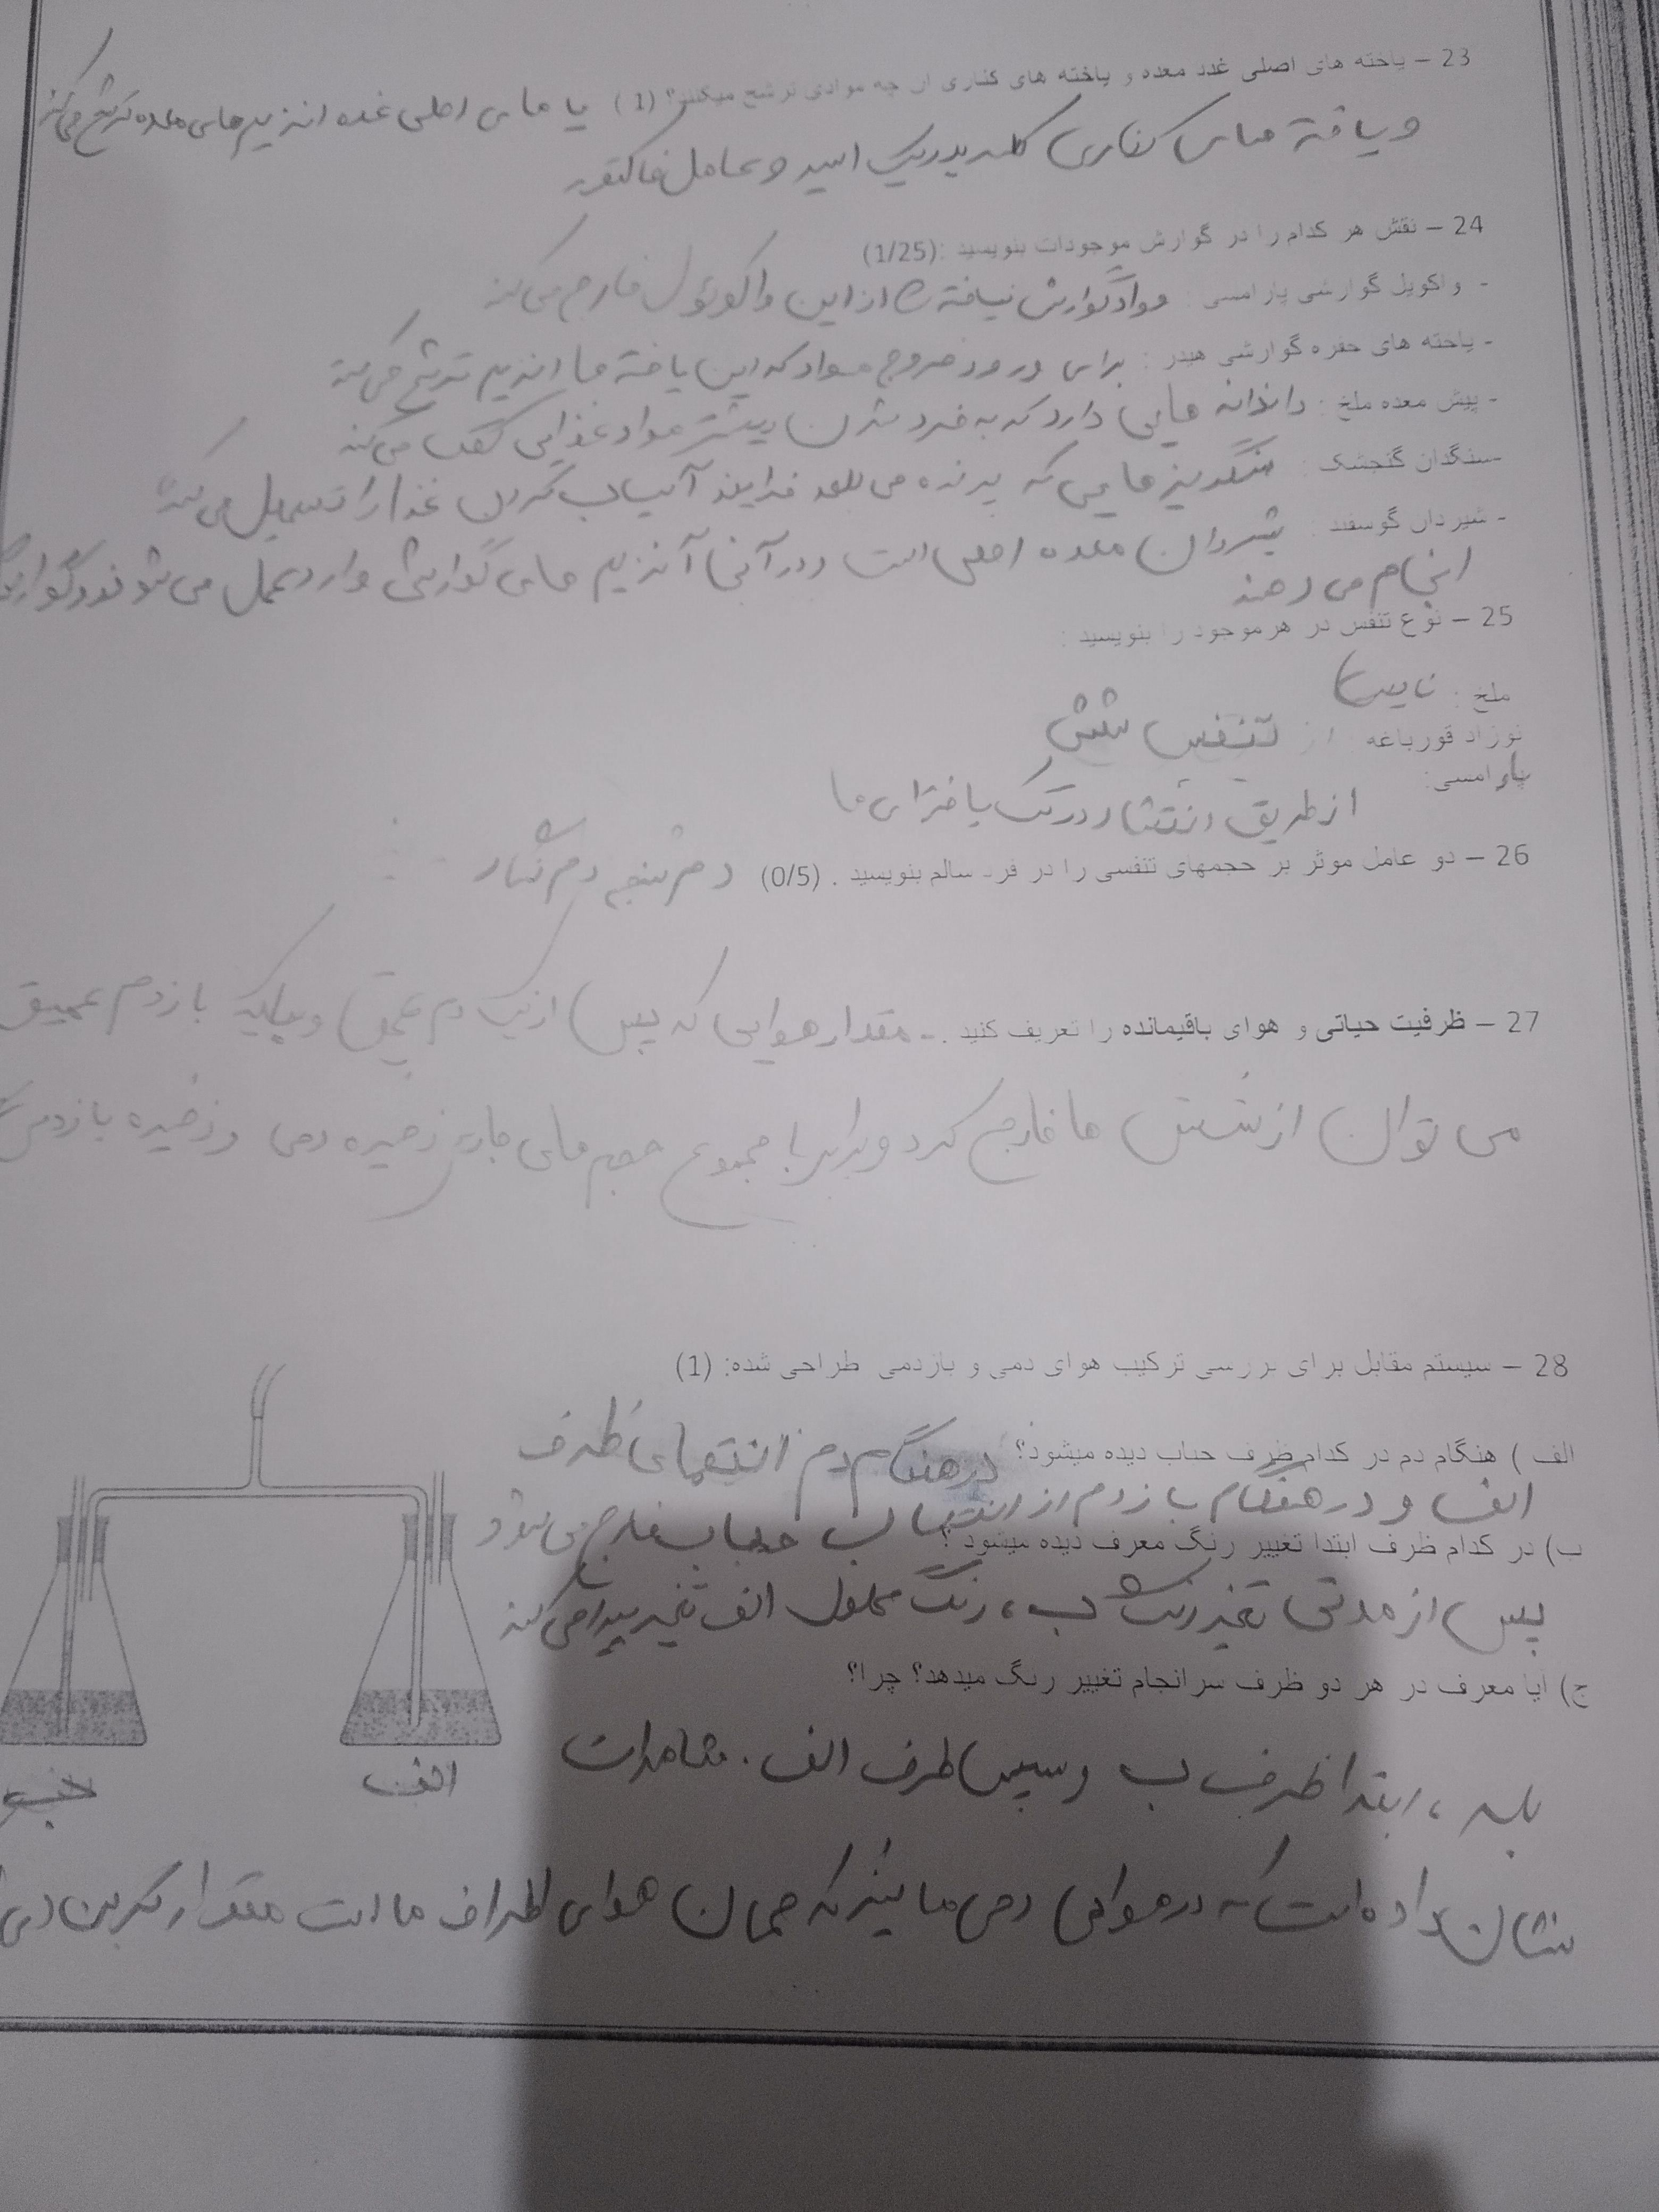 23 – یاخته های اصلی غدد معده و یاخته های کناری آن چه موادی ترشح میکنند؟ (1) یا های اصلی غده انزیم های معده ترشح می کند
و یافته های کناری کلریدریک اسید و عامل فاکتور
24 – نقش هر کدام را در گوارش موجودات بنویسید :(1/25)
- واکویل گوارشی پارامسی : مواد گوارش نیافته از این واکوئول خارج می کند
- یاخته های حفره گوارشی هیدر : برای ورود خروج مواد که این یاخته ها انزیم ترشح می کند
- پیش معده ملخ : دندانه هایی دارد که به خرد شدن بیشتر مواد غذایی کمک می کند
-سنگدان گنجشک : سنگریزهایی که پرنده می بلعد فرایند آسیاب کردن غذا را تسهیل می کند
- شیردان گوسفند : شیردان معده اصلی است و در آنجا آنزیم های گوارشی وارد عمل می شوند و گوارش
انجام می دهند
25 – نوع تنفس در هر موجود را بنویسید :
ملخ : نایی
نوزاد قورباغه : تنفس ششی
پارامسی: از طریق انتشار در تک یاخته ای ها
26 – دو عامل موثر بر حجمهای تنفسی را در فرد سالم بنویسید . (0/5)
27 – ظرفیت حیاتی و هوای باقیمانده را تعریف کنید . - مقدار هوایی که پس از یک دم عمیق و با یک بازدم عمیق
می توان از شش ها خارج کرد و برابر با مجموع حجم های جاری ذخیره دمی و ذخیره بازدمی
28 – سیستم مقابل برای بررسی ترکیب هوای دمی و بازدمی طراحی شده: (1)
الف ) هنگام دم در کدام ظرف حباب دیده میشود؟ در هنگام دم از انتهای ظرف
الف و در هنگام بازدم از انتهای ب حباب خارج می شود
ب) در کدام ظرف ابتدا تغییر رنگ معرف دیده میشود ؟
پس از مدتی تغیر رنگ ب ، رنگ محلول الف تغیر پیدا می کند
ج) آیا معرف در هر دو ظرف سرانجام تغییر رنگ میدهد؟ چرا؟
بله ، ابتدا ظرف ب و سپس ظرف الف . مشاهدات
الف
نشان داده است که در هوای دمی ما نیز که همان هوای اطراف ما است مقدار کربن دی